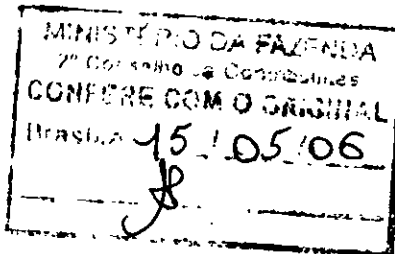 MINISTÉRIO DA FAZENDA
2º Conselho de Contribuintes
CONFERE COM O ORIGINAL
Brasília 15 / 05 / 06